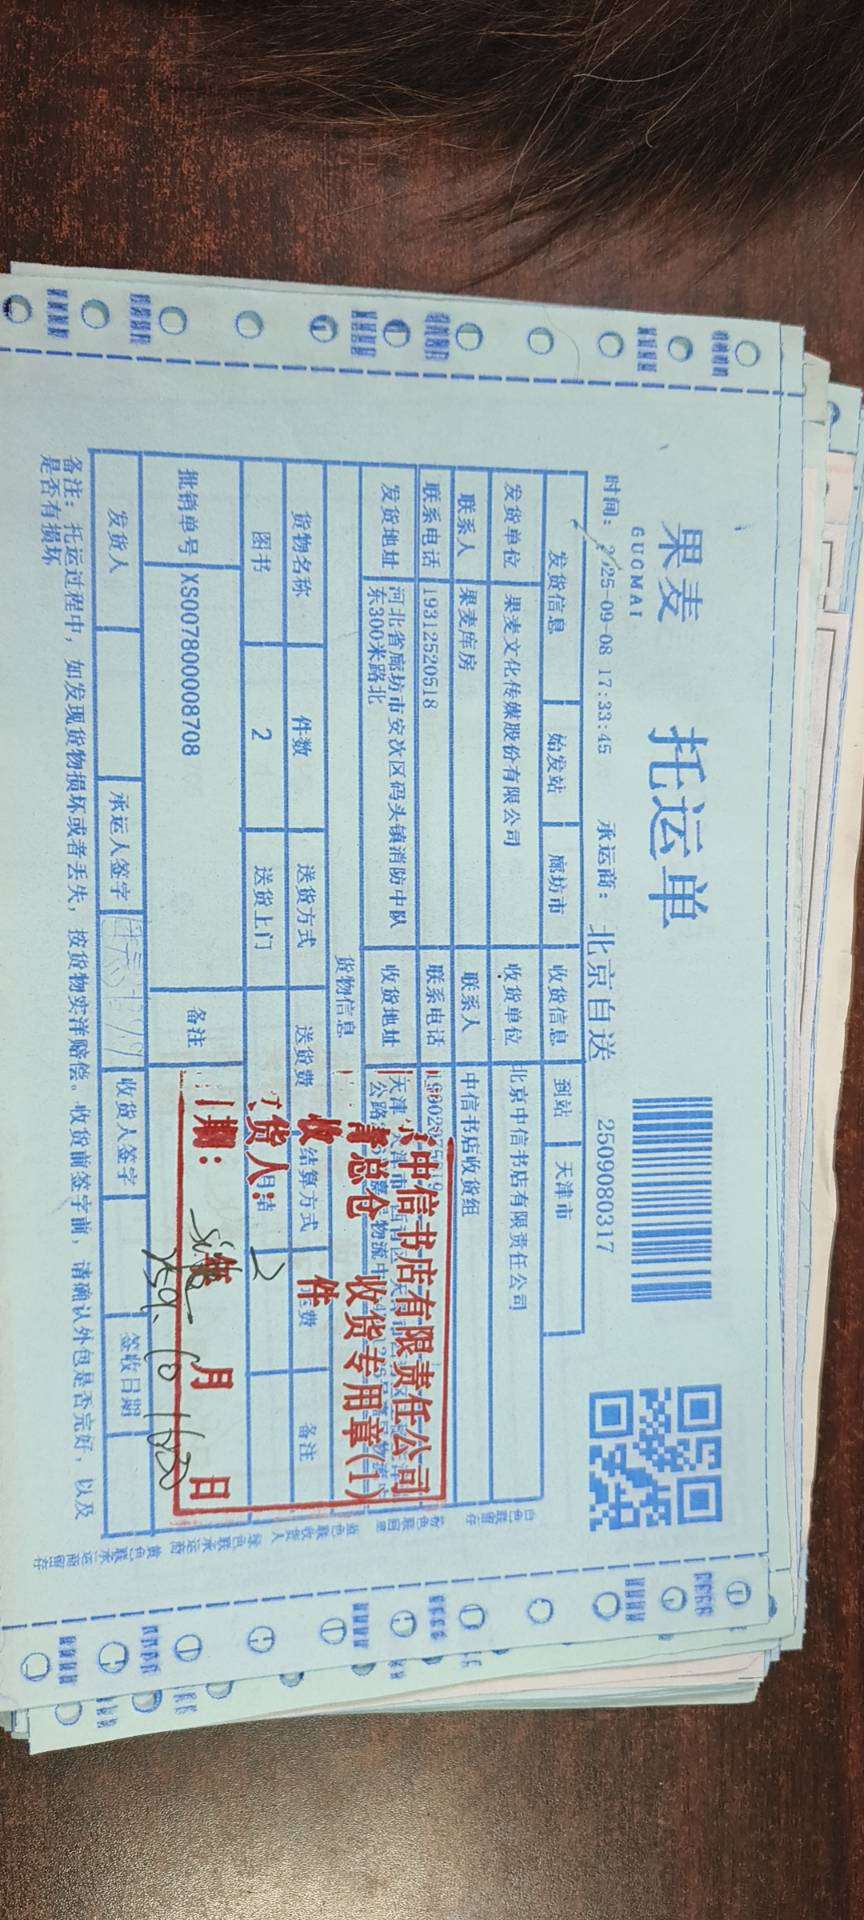 果麦 托运单
GUOMAI
时间: 2025-09-08 17:33:45 承运商: 北京自送 2509080317
发货信息 始发站 廊坊市 收货信息 到站 天津市
发货单位 果麦文化传媒股份有限公司 收货单位 北京中信书店有限责任公司
联系人 果麦库房 联系人 中信书店收货组
联系电话 19312520518 联系电话
发货地址 河北省廊坊市安次区码头镇消防中队东300米路北 收货地址
货物信息
货物名称 件数 送货方式 送货费 结算方式 备注
图书 2 送货上门 月结
批销单号 XS007800008708 备注
发货人 承运人签字 收货人签字 签收日期
备注: 托运过程中, 如发现货物损坏或者丢失, 按货物实洋赔偿。收货前签字前, 请确认外包是否完好, 以及
是否有损坏
中信书店有限责任公司
总仓 收货专用章(1)
收 2 件
货人:
期: 年 月 日
白色联留存 粉色联回单 蓝色联收货人 绿色联承运商 黄色联承运商留存